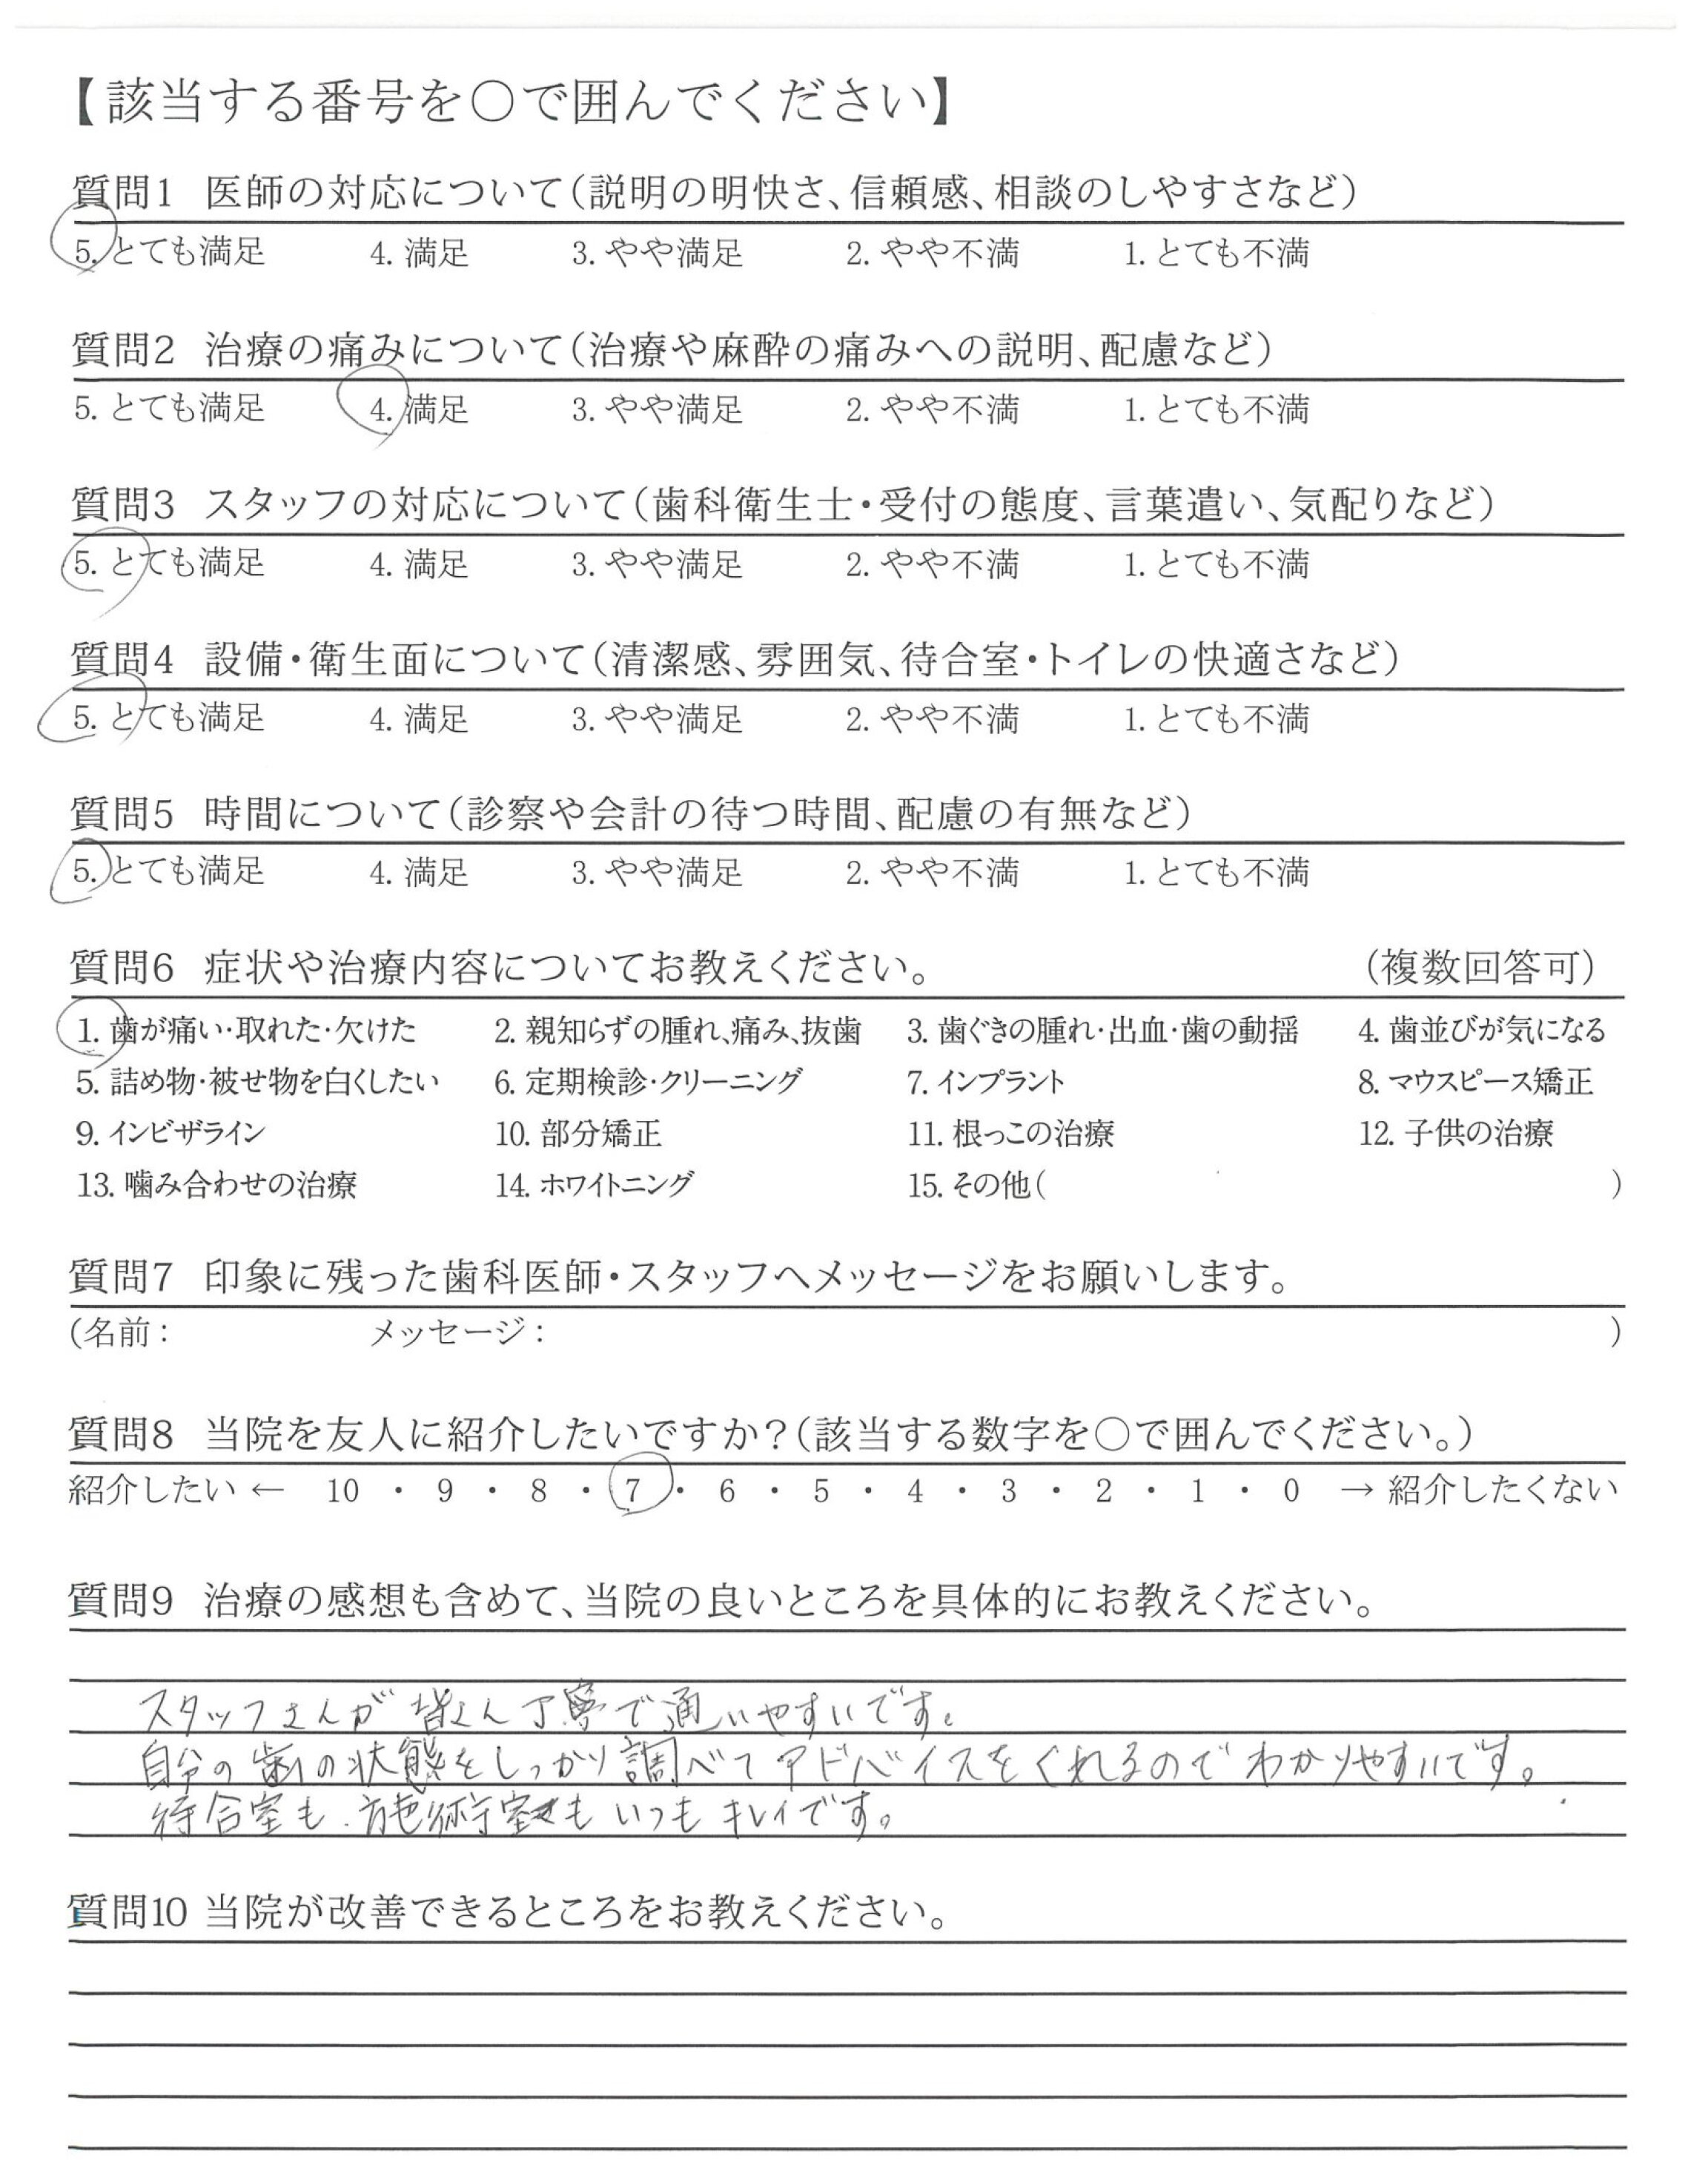 【該当する番号を〇で囲んでください】
質問1 医師の対応について(説明の明快さ、信頼感、相談のしやすさなど)
5. とても満足 4. 満足 3. やや満足 2. やや不満 1. とても不満
質問2 治療の痛みについて(治療や麻酔の痛みへの説明、配慮など)
5. とても満足 4. 満足 3. やや満足 2. やや不満 1. とても不満
質問3 スタッフの対応について(歯科衛生士・受付の態度、言葉遣い、気配りなど)
5. とても満足 4. 満足 3. やや満足 2. やや不満 1. とても不満
質問4 設備・衛生面について(清潔感、雰囲気、待合室・トイレの快適さなど)
5. とても満足 4. 満足 3. やや満足 2. やや不満 1. とても不満
質問5 時間について(診察や会計の待つ時間、配慮の有無など)
5. とても満足 4. 満足 3. やや満足 2. やや不満 1. とても不満
質問6 症状や治療内容についてお教えください。 (複数回答可)
1. 歯が痛い・取れた・欠けた 2. 親知らずの腫れ、痛み、抜歯 3. 歯ぐきの腫れ・出血・歯の動揺 4. 歯並びが気になる
5. 詰め物・被せ物を白くしたい 6. 定期検診・クリーニング 7. インプラント 8. マウスピース矯正
9. インビザライン 10. 部分矯正 11. 根っこの治療 12. 子供の治療
13. 噛み合わせの治療 14. ホワイトニング 15. その他( )
質問7 印象に残った歯科医師・スタッフへメッセージをお願いします。
(名前: メッセージ: )
質問8 当院を友人に紹介したいですか?(該当する数字を〇で囲んでください。)
紹介したい ← 10 ・ 9 ・ 8 ・ 7 ・ 6 ・ 5 ・ 4 ・ 3 ・ 2 ・ 1 ・ 0 → 紹介したくない
質問9 治療の感想も含めて、当院の良いところを具体的にお教えください。
スタッフさんが皆さん丁寧で通いやすいです。
自分の歯の状態をしっかり調べてアドバイスをくれるのでわかりやすいです。
待合室も、施術室もいつもキレイです。
質問10 当院が改善できるところをお教えください。